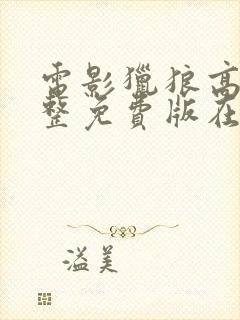 電影獵狼高
整免費版在
溢美